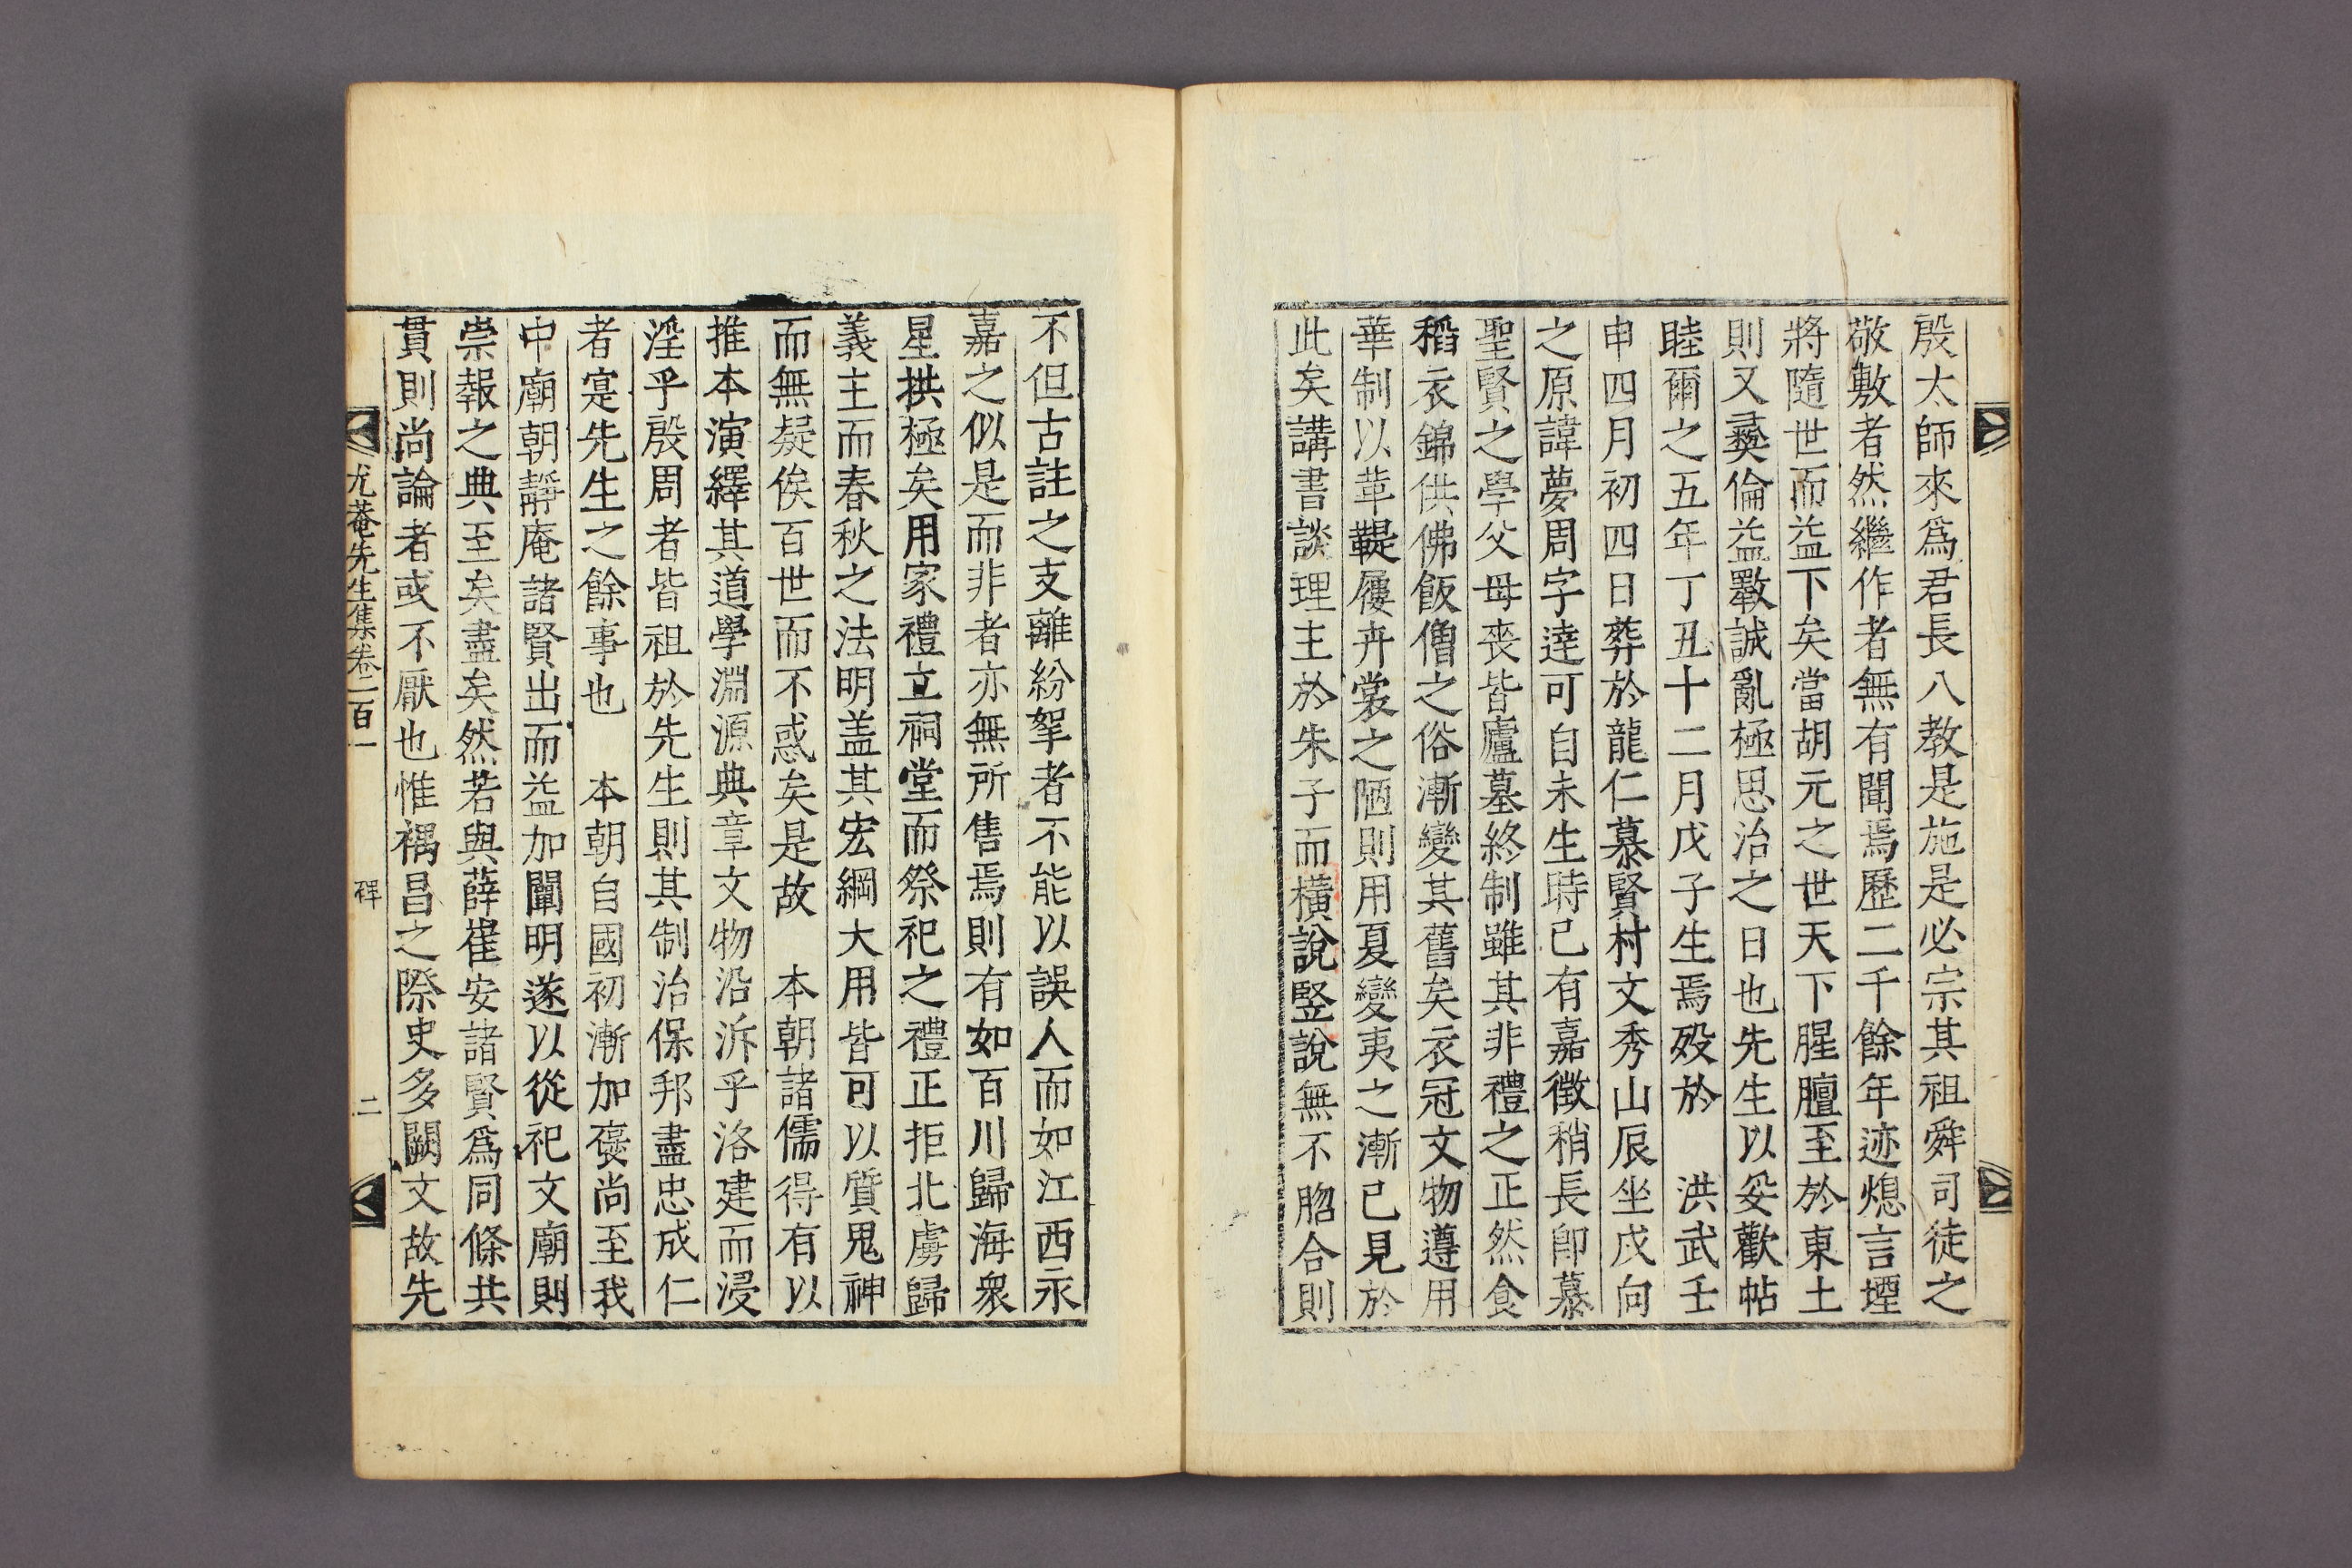 殷太師來爲君長八教是施是必宗其祖舜司徒之
敬敷者然繼作者無有聞焉歷二千餘年迹熄言堙
將隨世而益下矣當胡元之世天下腥膻至於東土
則又彝倫益斁誠亂極思治之日也先生以妥歡帖
睦爾之五年丁丑十二月戊子生焉歿於　洪武壬
申四月初四日葬於龍仁慕賢村文秀山辰坐戌向
之原諱夢周字達可自未生時已有嘉徵稍長卽慕
聖賢之學父母喪皆廬墓終制雖其非禮之正然食
稻衣錦供佛飯僧之俗漸變其舊矣衣冠文物遵用
華制以革鞮屨卉裳之陋則用夏變夷之漸已見於
此矣講書談理主於朱子而橫說竪說無不脗合則
不但古註之支離紛挐者不能以誤人而如江西永
嘉之似是而非者亦無所售焉則有如百川歸海衆
星拱極矣用家禮立祠堂而祭祀之禮正拒北虜歸
義主而春秋之法明盖其宏綱大用皆可以質鬼神
而無疑俟百世而不惑矣是故　本朝諸儒得有以
推本演繹其道學淵源典章文物沿泝乎洛建而浸
淫乎殷周者皆祖於先生則其制治保邦盡忠成仁
者寔先生之餘事也　本朝自國初漸加褒尚至我
中廟朝靜庵諸賢出而益加闡明遂以從祀文廟則
崇報之典至矣盡矣然若與薛崔安諸賢爲同條共
貫則尚論者或不厭也惟禑昌之際史多闕文故先
尤菴先生集卷二百一　碑　二